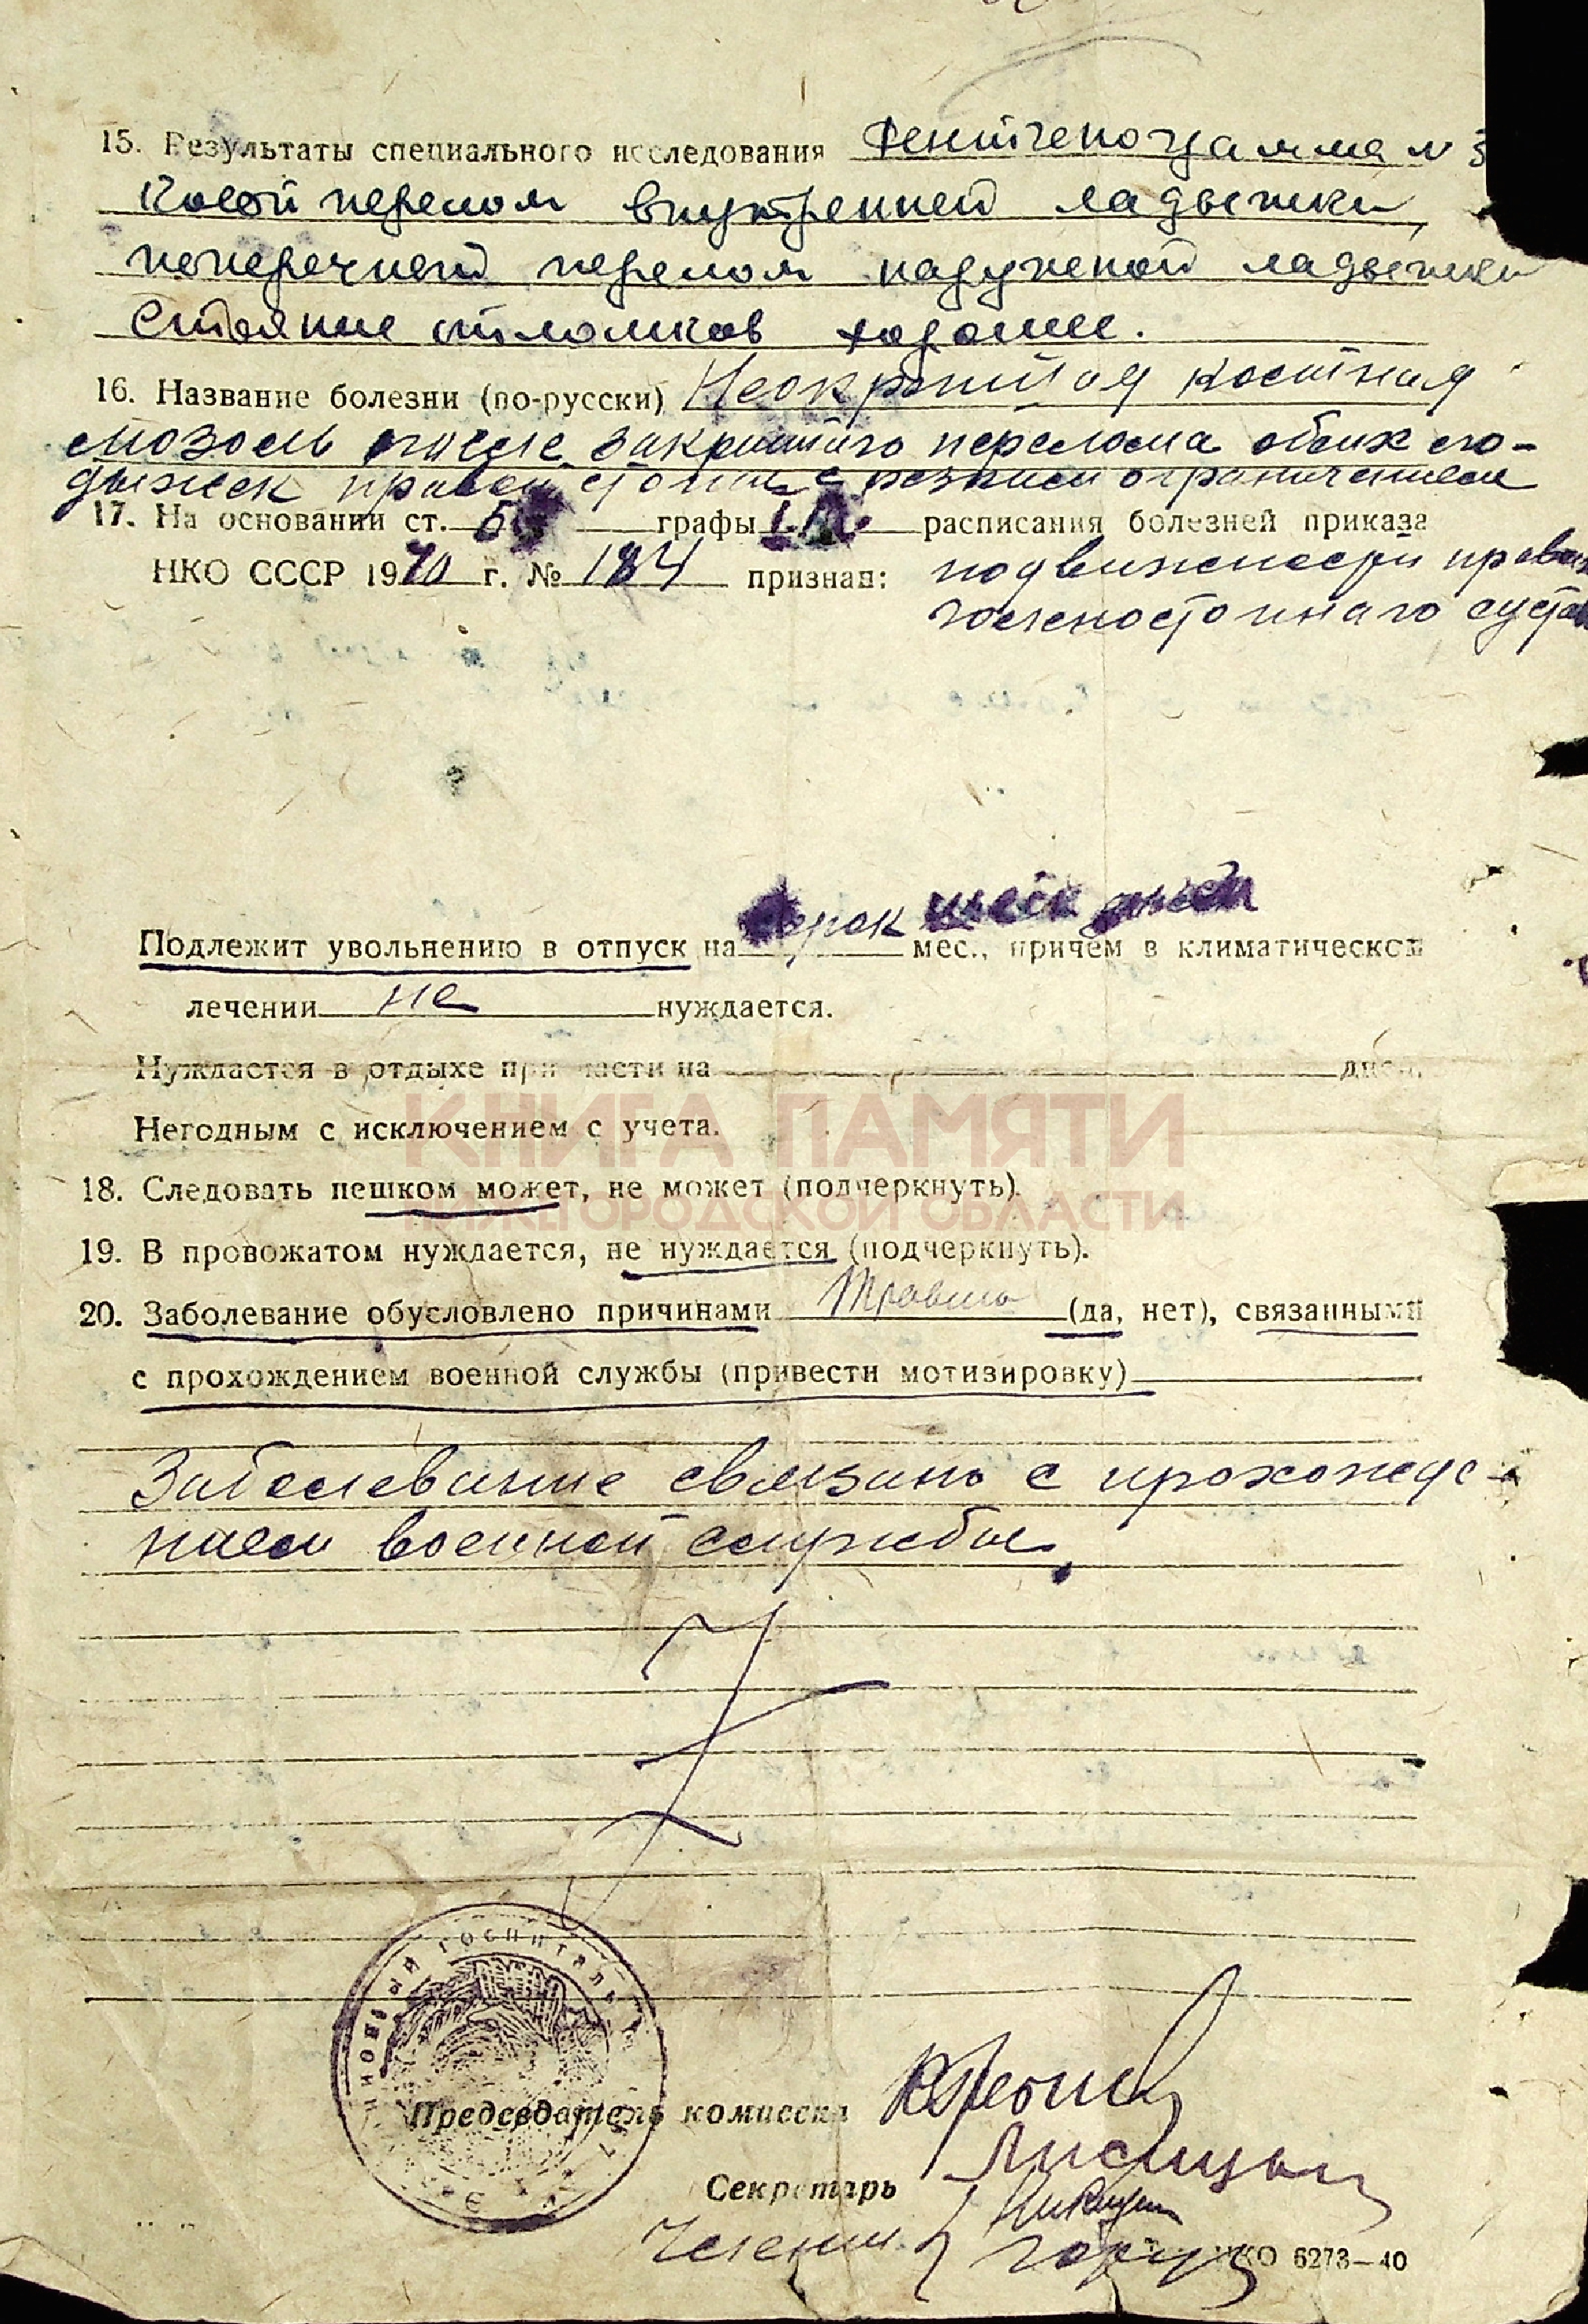 15. Результаты специального исследования Рентгенограмма N
Косой перелом внутренней ладыжки
поперечный перелом наружной ладыжки
Стояние отломков хорошее.
16. Название болезни (по-русски) Неокрепшая костная
мозоль после закрытого перелома обеих ло-
дыжек правой стопы с резким ограничением
17. На основании ст. графы расписания болезней приказа
НКО СССР 1940 г. № 184 признан: подвижности правого
голеностопного
Подлежит увольнению в отпуск на мес., причем в климатическом
лечении не нуждается.
Нуждается в отдыхе при части на дней.
Негодным с исключением с учета.
КНИГА ПАМЯТИ
18. Следовать пешком может, не может (подчеркнуть).
НИЖЕГОРОДСКОЙ ОБЛАСТИ
19. В провожатом нуждается, не нуждается (подчеркнуть).
20. Заболевание обусловлено причинами Травма (да, нет), связанными
с прохождением военной службы (привести мотивировку)
Заболевание связано с прохожде-
нием военной службы.
госпиталь
Председатель комиссии
Секретарь
Члены
НКО 6273—40